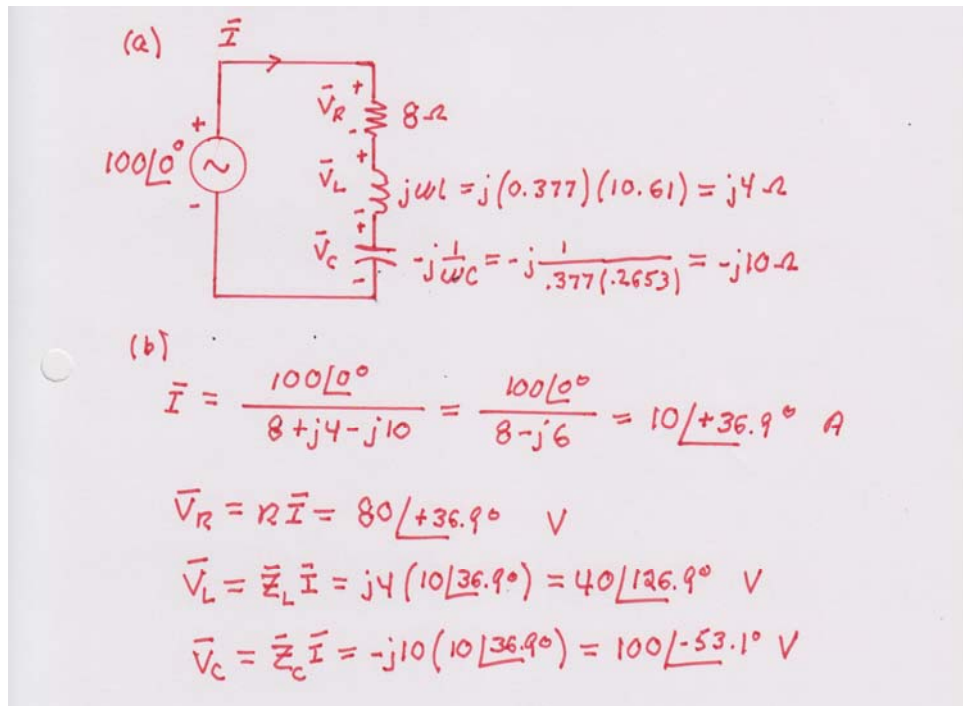 (a) Ī
+
100∠0°
-
+
V̄_R 8Ω
-
+
V̄_L jωL = j(0.377)(10.61) = j4 Ω
-
+
V̄_C -j 1/ωC = -j 1/.377(.2653) = -j10 Ω
-
(b)
Ī = 100∠0° / 8+j4-j10 = 100∠0° / 8-j6 = 10∠+36.9° A
V̄_R = RĪ = 80∠+36.9° V
V̄_L = Z̄_L Ī = j4(10∠36.9°) = 40∠126.9° V
V̄_C = Z̄_C Ī = -j10(10∠36.9°) = 100∠-53.1° V